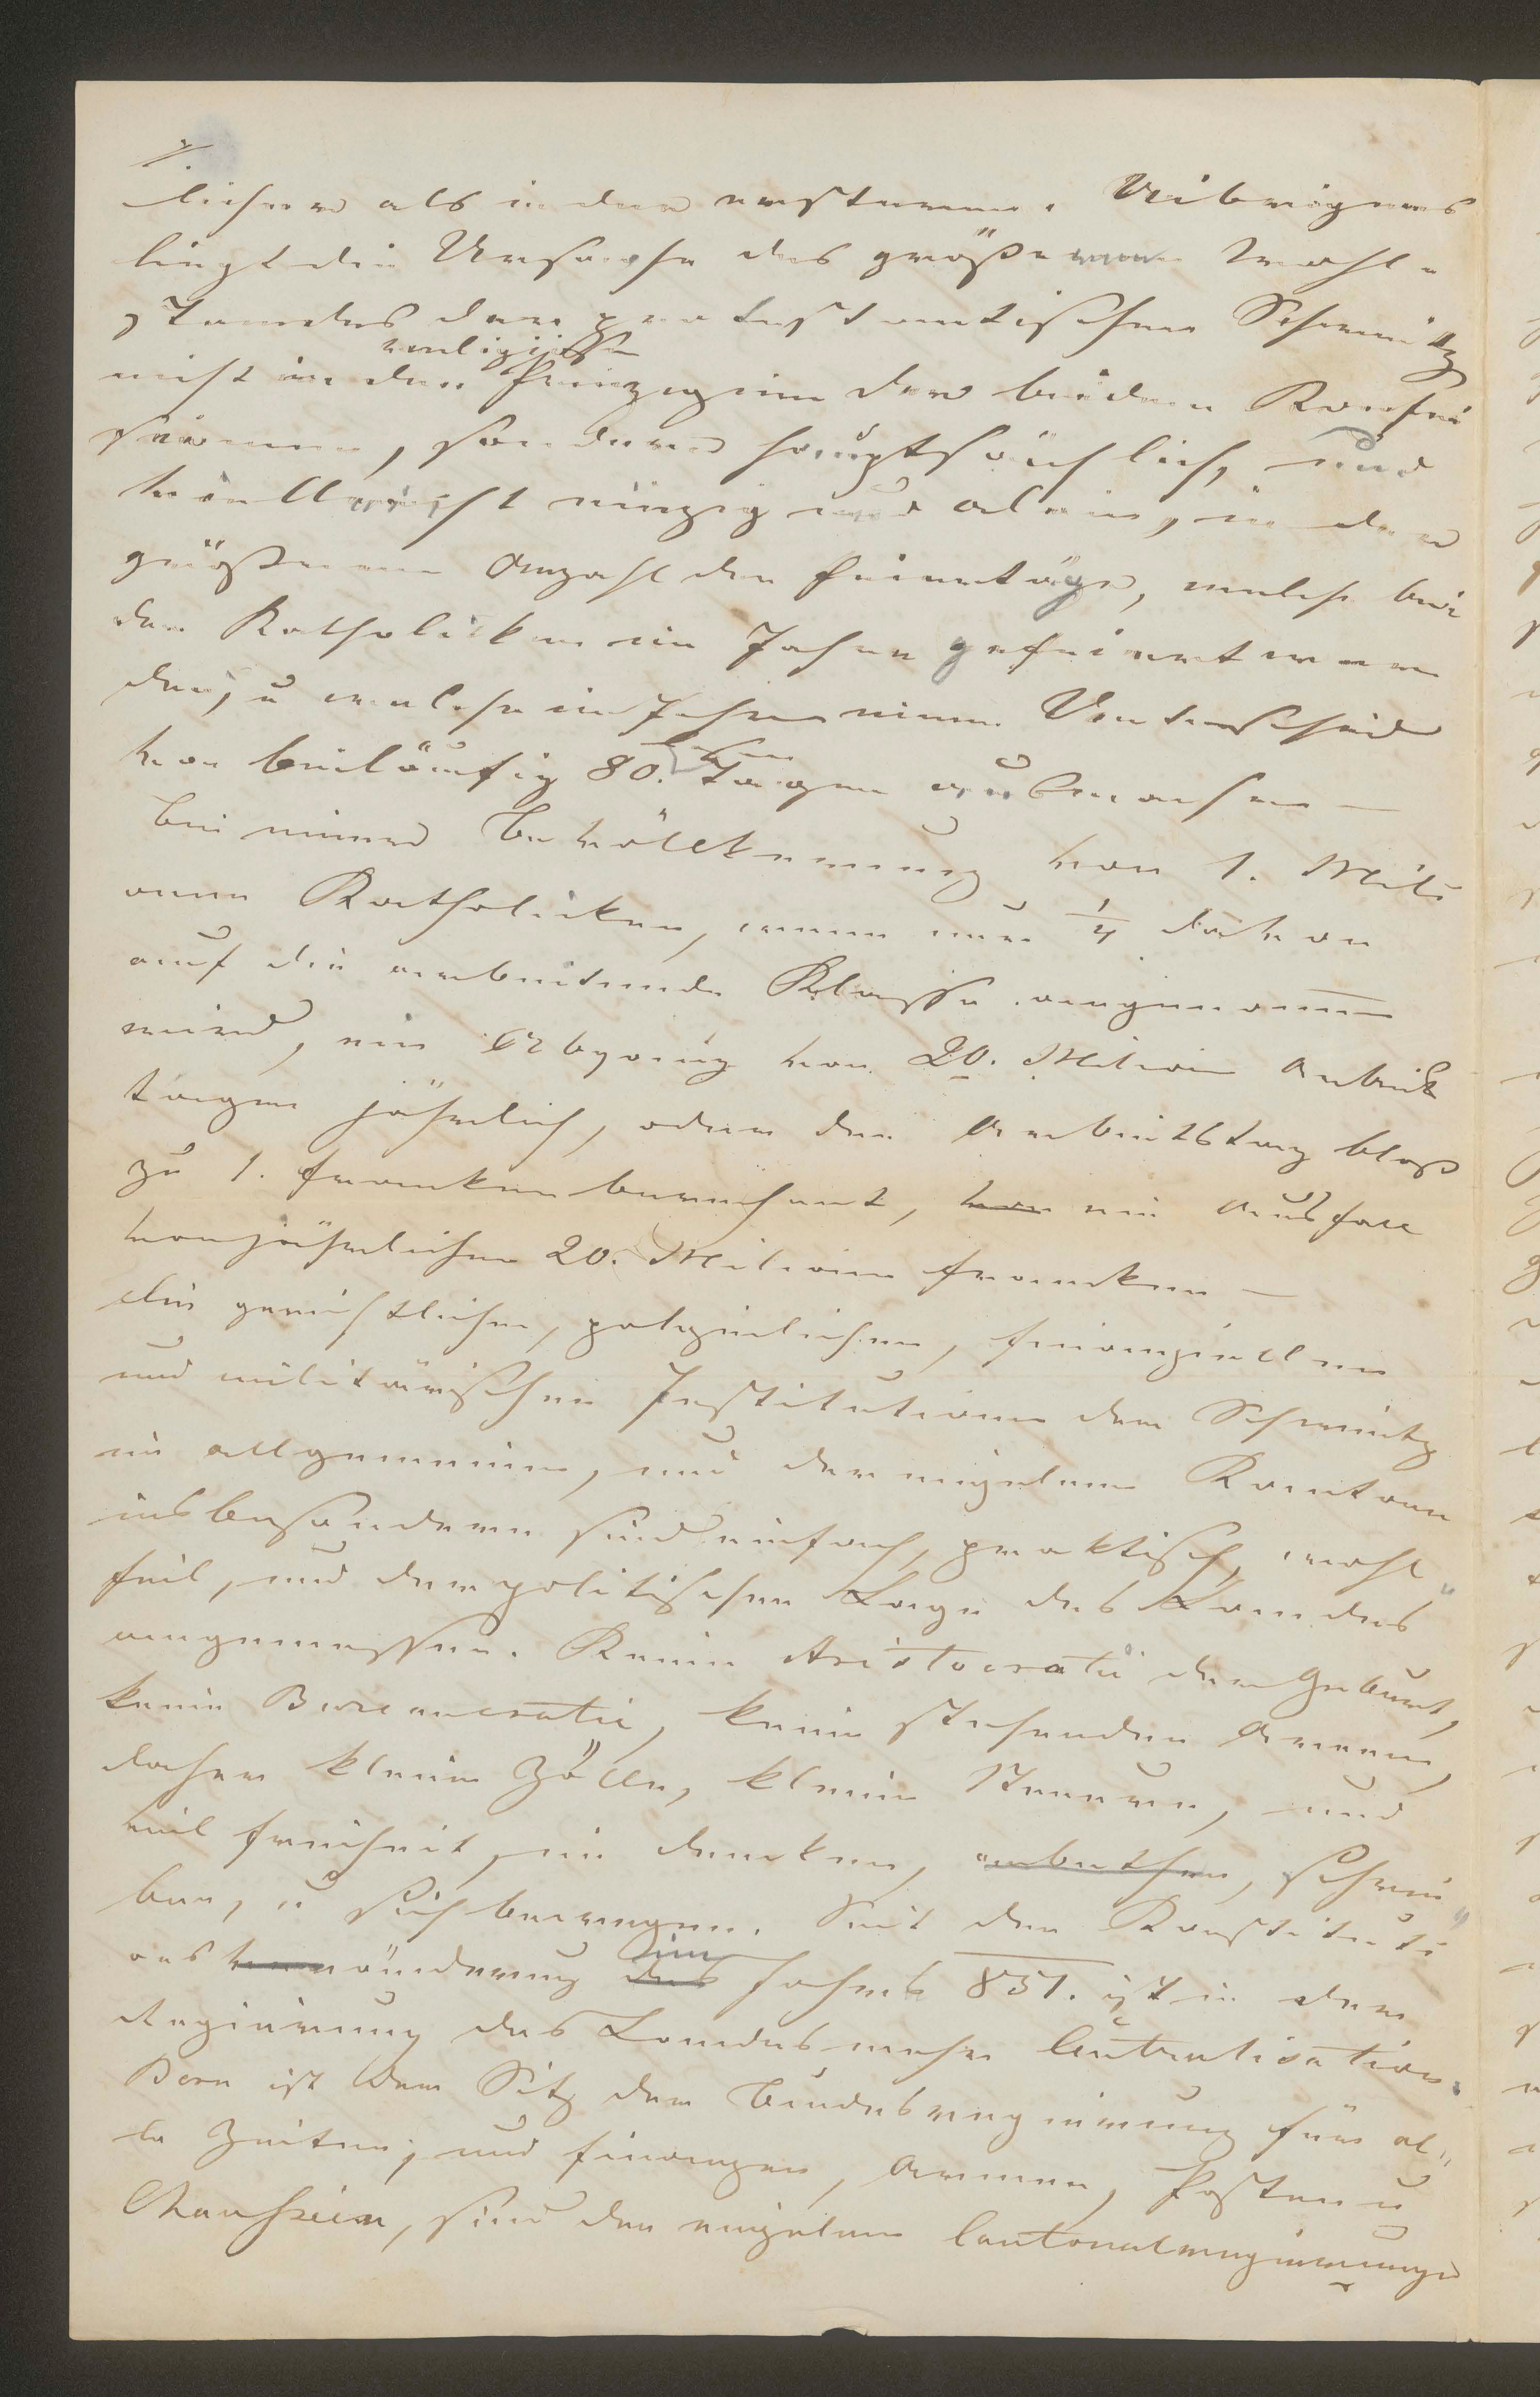 licher als in der ersteren. Uibrigens
liegt die Ursache des größeren Wohl-
standes der protestantischen Schweitz
religiösen
nicht in den Prinzipien der beiden Konfes
sionen, sondern hauptsächlich, und
vielleicht einzig und allein, in der
größeren Anzahl der Feiertäge, welche bei
den Katholicken im Jahre gefeiert wer
den, u welche im Jahre einen Unterschied
von beiläufig 80. Tagen ausmachen —
bei einer Bevölkerung von 1. Mili
onen Katholicken, wenn nur 1/4 davon
auf die arbeitende Klasse angenommen
wird, ein Abgang von 20. Milion Arbeits
tagen jährlich, oder den Arbeitstag bloß
zu 1. Franken berechnet, von ein Ausfall
von jährlichen 20. Milionen Francken —
Die gerichtlichen, polizeilichen, finanziellen
und militärischen Institutionen der Schweitz
im allgemeinen, und der einzelnen Kantone
insbesondere sind einfach, praktisch, wohl
feil, und der politischen Lage des Landes
angemessen. Keine Aristocratie der Geburt,
keine Bureaucratie, keine stehenden Armeen,
daher kleine Zölle, kleine Steuern, und
viel Freiheit, im Denken, arbeiten, schrei
ben, u sich bewegen. Seit der Konstituti
im
onsveränderung des Jahres 851. ist in der
Regierung des Landes mehr Centralisation.
Bern ist der Sitz der Bundesregierung für al-
le Zeiten; und Finanzen, Armeen, Posten u
Chausseien, sind den einzelnen Cantonalregierungen